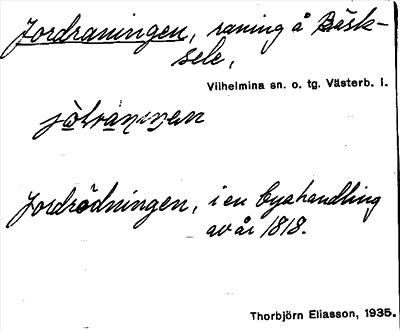 Jordraningen, raning å Bäsk-
sele,
Vilhelmina sn. o. tg. Västerb. l.
Jordrödningen, i en byahandling
av år 1818.
Thorbjörn Eliasson, 1935.